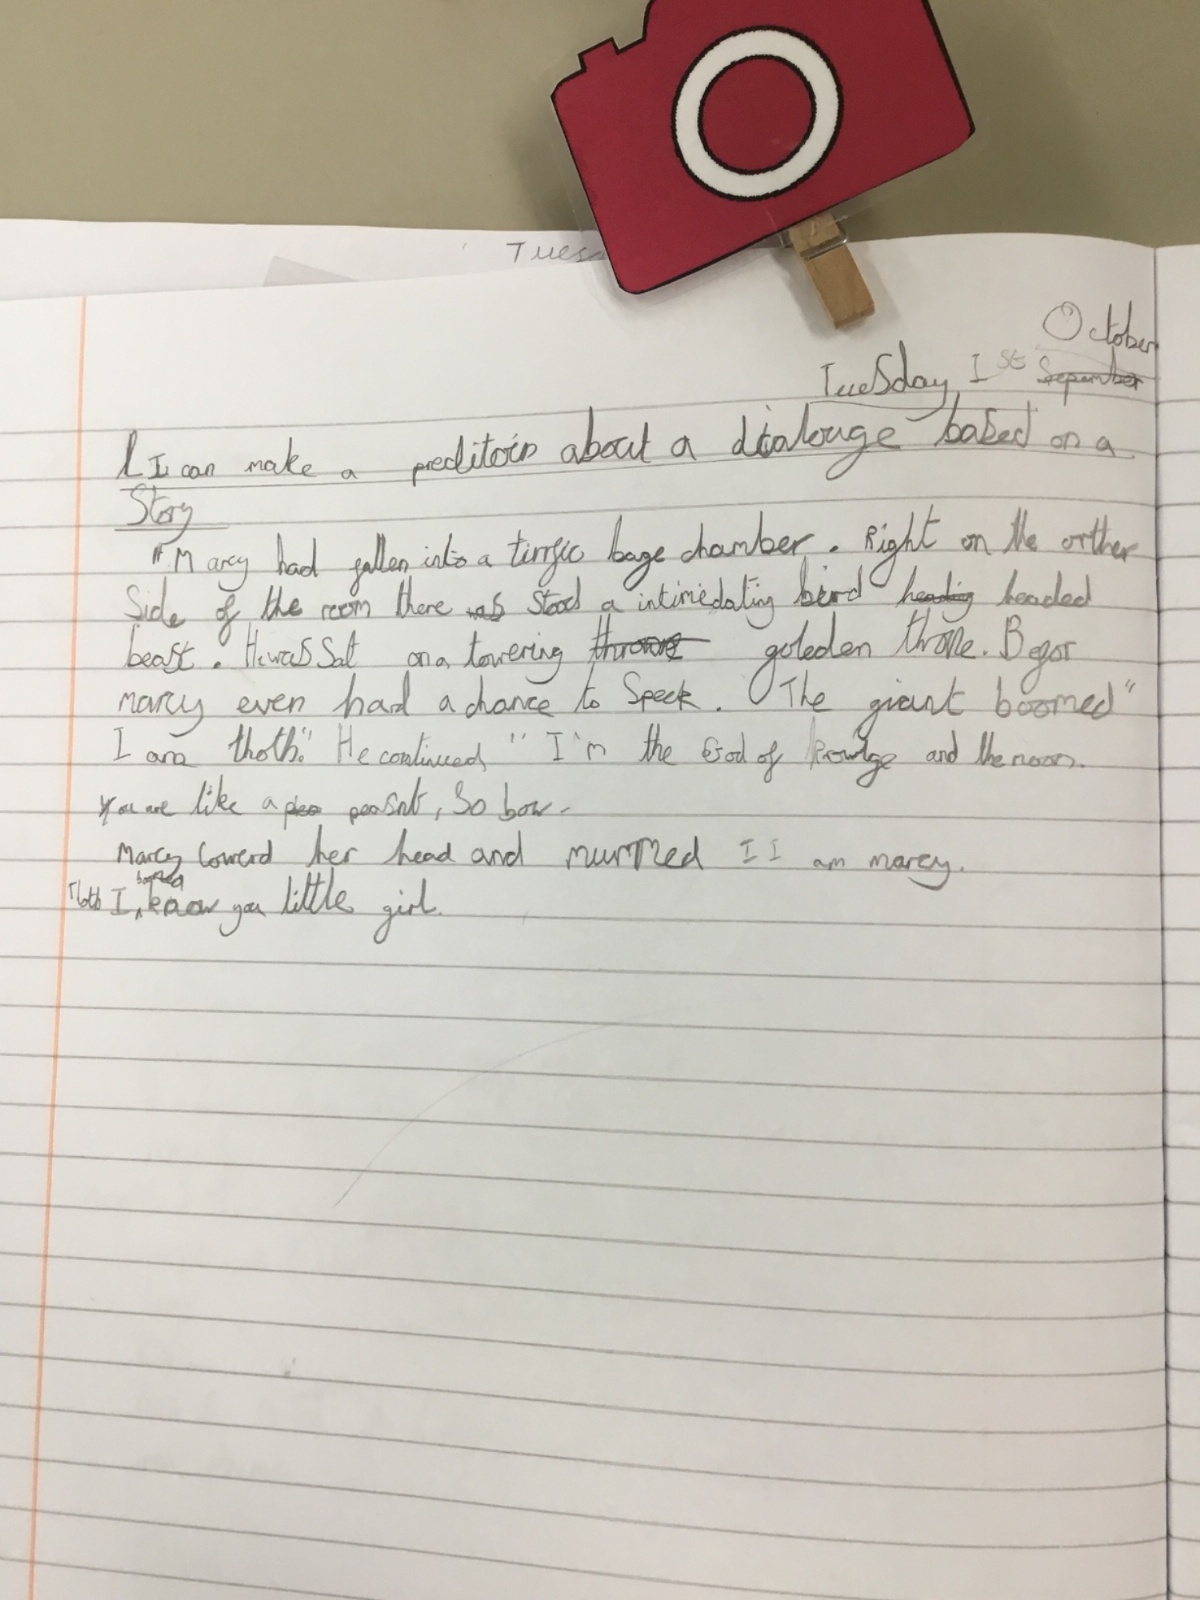 Tues
October
Tuesday 1st Sepember
LI I can make a preditoin about a dialouge based on a
Story
"Marcy had fallen into a tirrfic huge chamber. Right on the orther
Side of the room there was stood a intimedating bird heading headed
beast. He was Sat on a towering throne goleden throne. Befor
marcy even had a chance to Speek. The giant boomed "
I am thoth." He continued "I'm the God of and the moon.
You are like a peasnt, So bow.
Marcy lowerd her head and murmed I I am marcy.
boomed
Thoth I know you little girl.